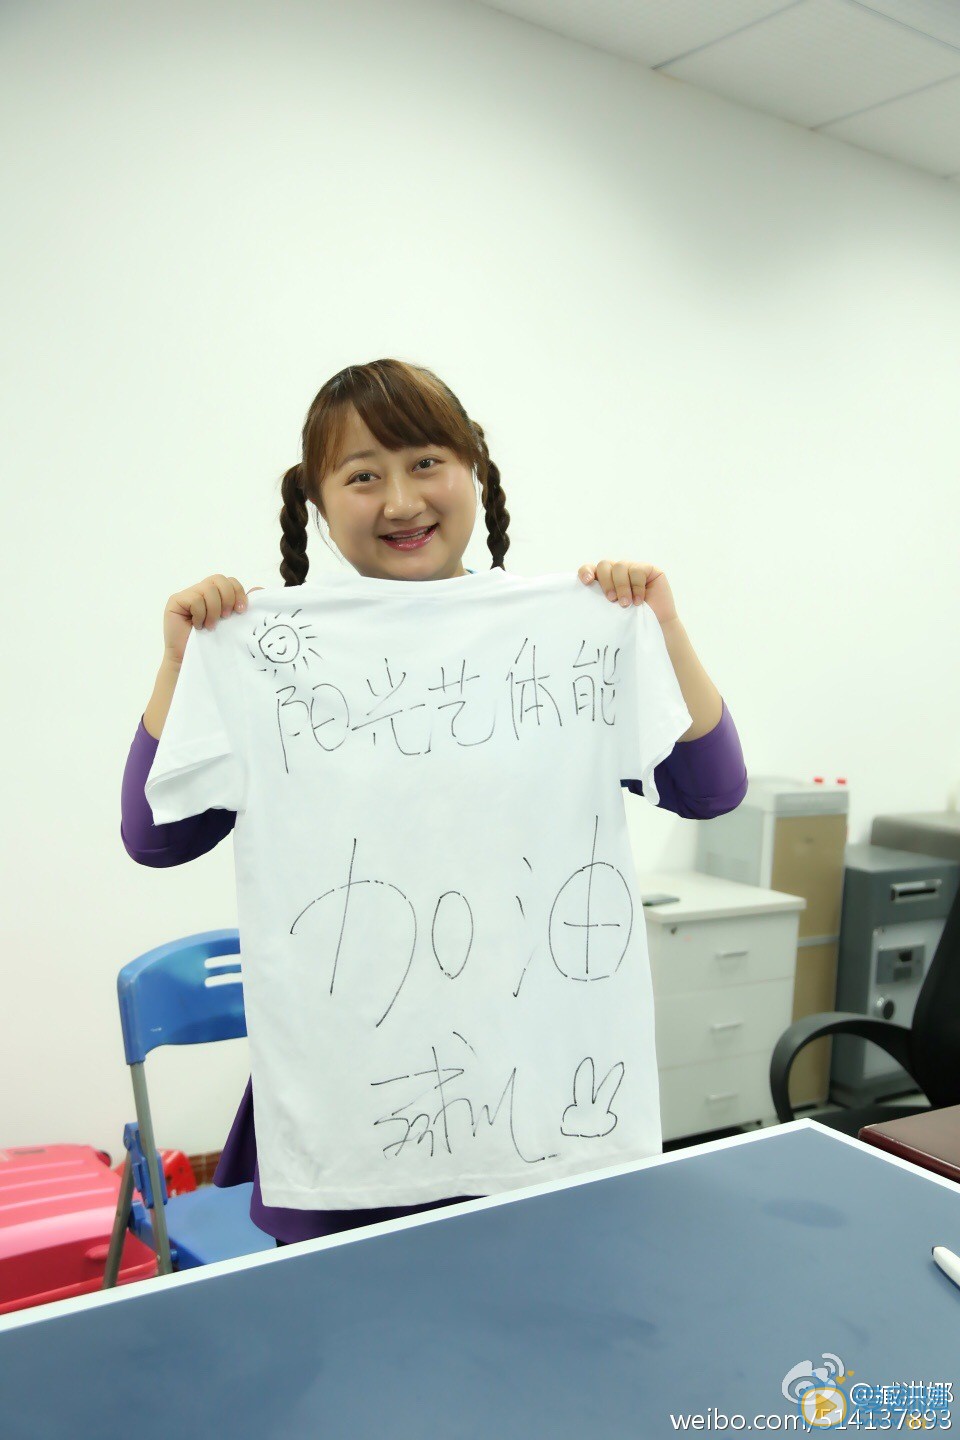 阳光艺体能
加油
球儿
@臧洪娜
weibo.com/514137893